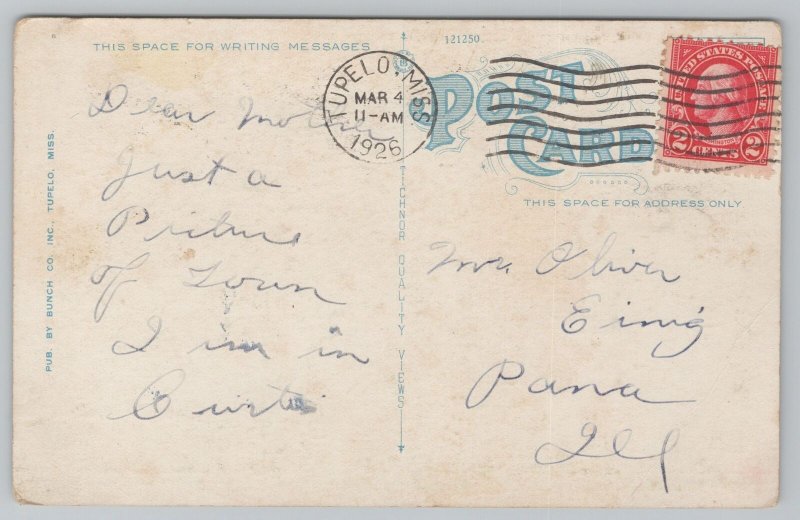 THIS SPACE FOR WRITING MESSAGES
121250
POST CARD
THIS SPACE FOR ADDRESS ONLY
TUPELO, MISS.
MAR 4
11-AM
1926
UNITED STATES POSTAGE
WASHINGTON
2 CENTS 2
PUB. BY BUNCH CO. INC., TUPELO, MISS.
TICHNOR QUALITY VIEWS
Dear Mother
Just a
Picture
of Town
I im in
Curtis
Mr. Oliver
Einig
Pana
Ill